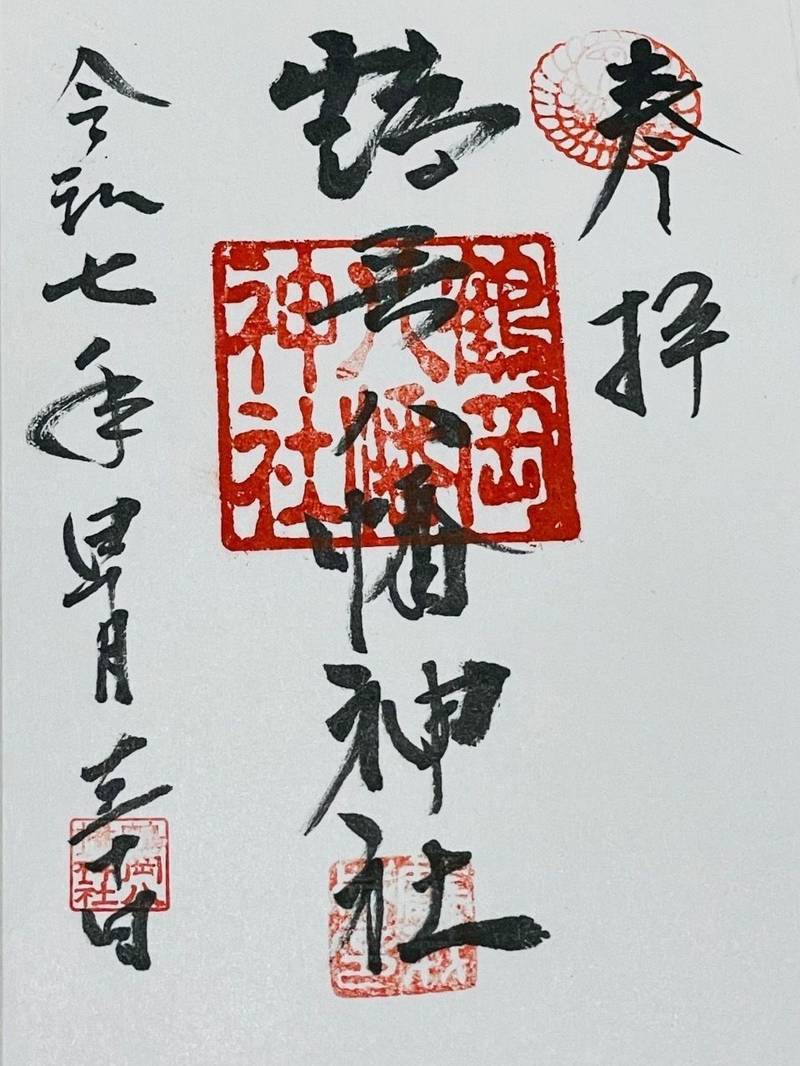 奉拝
鶴岡八幡神社
鶴岡
八幡
神社
令和七年皐月三十日